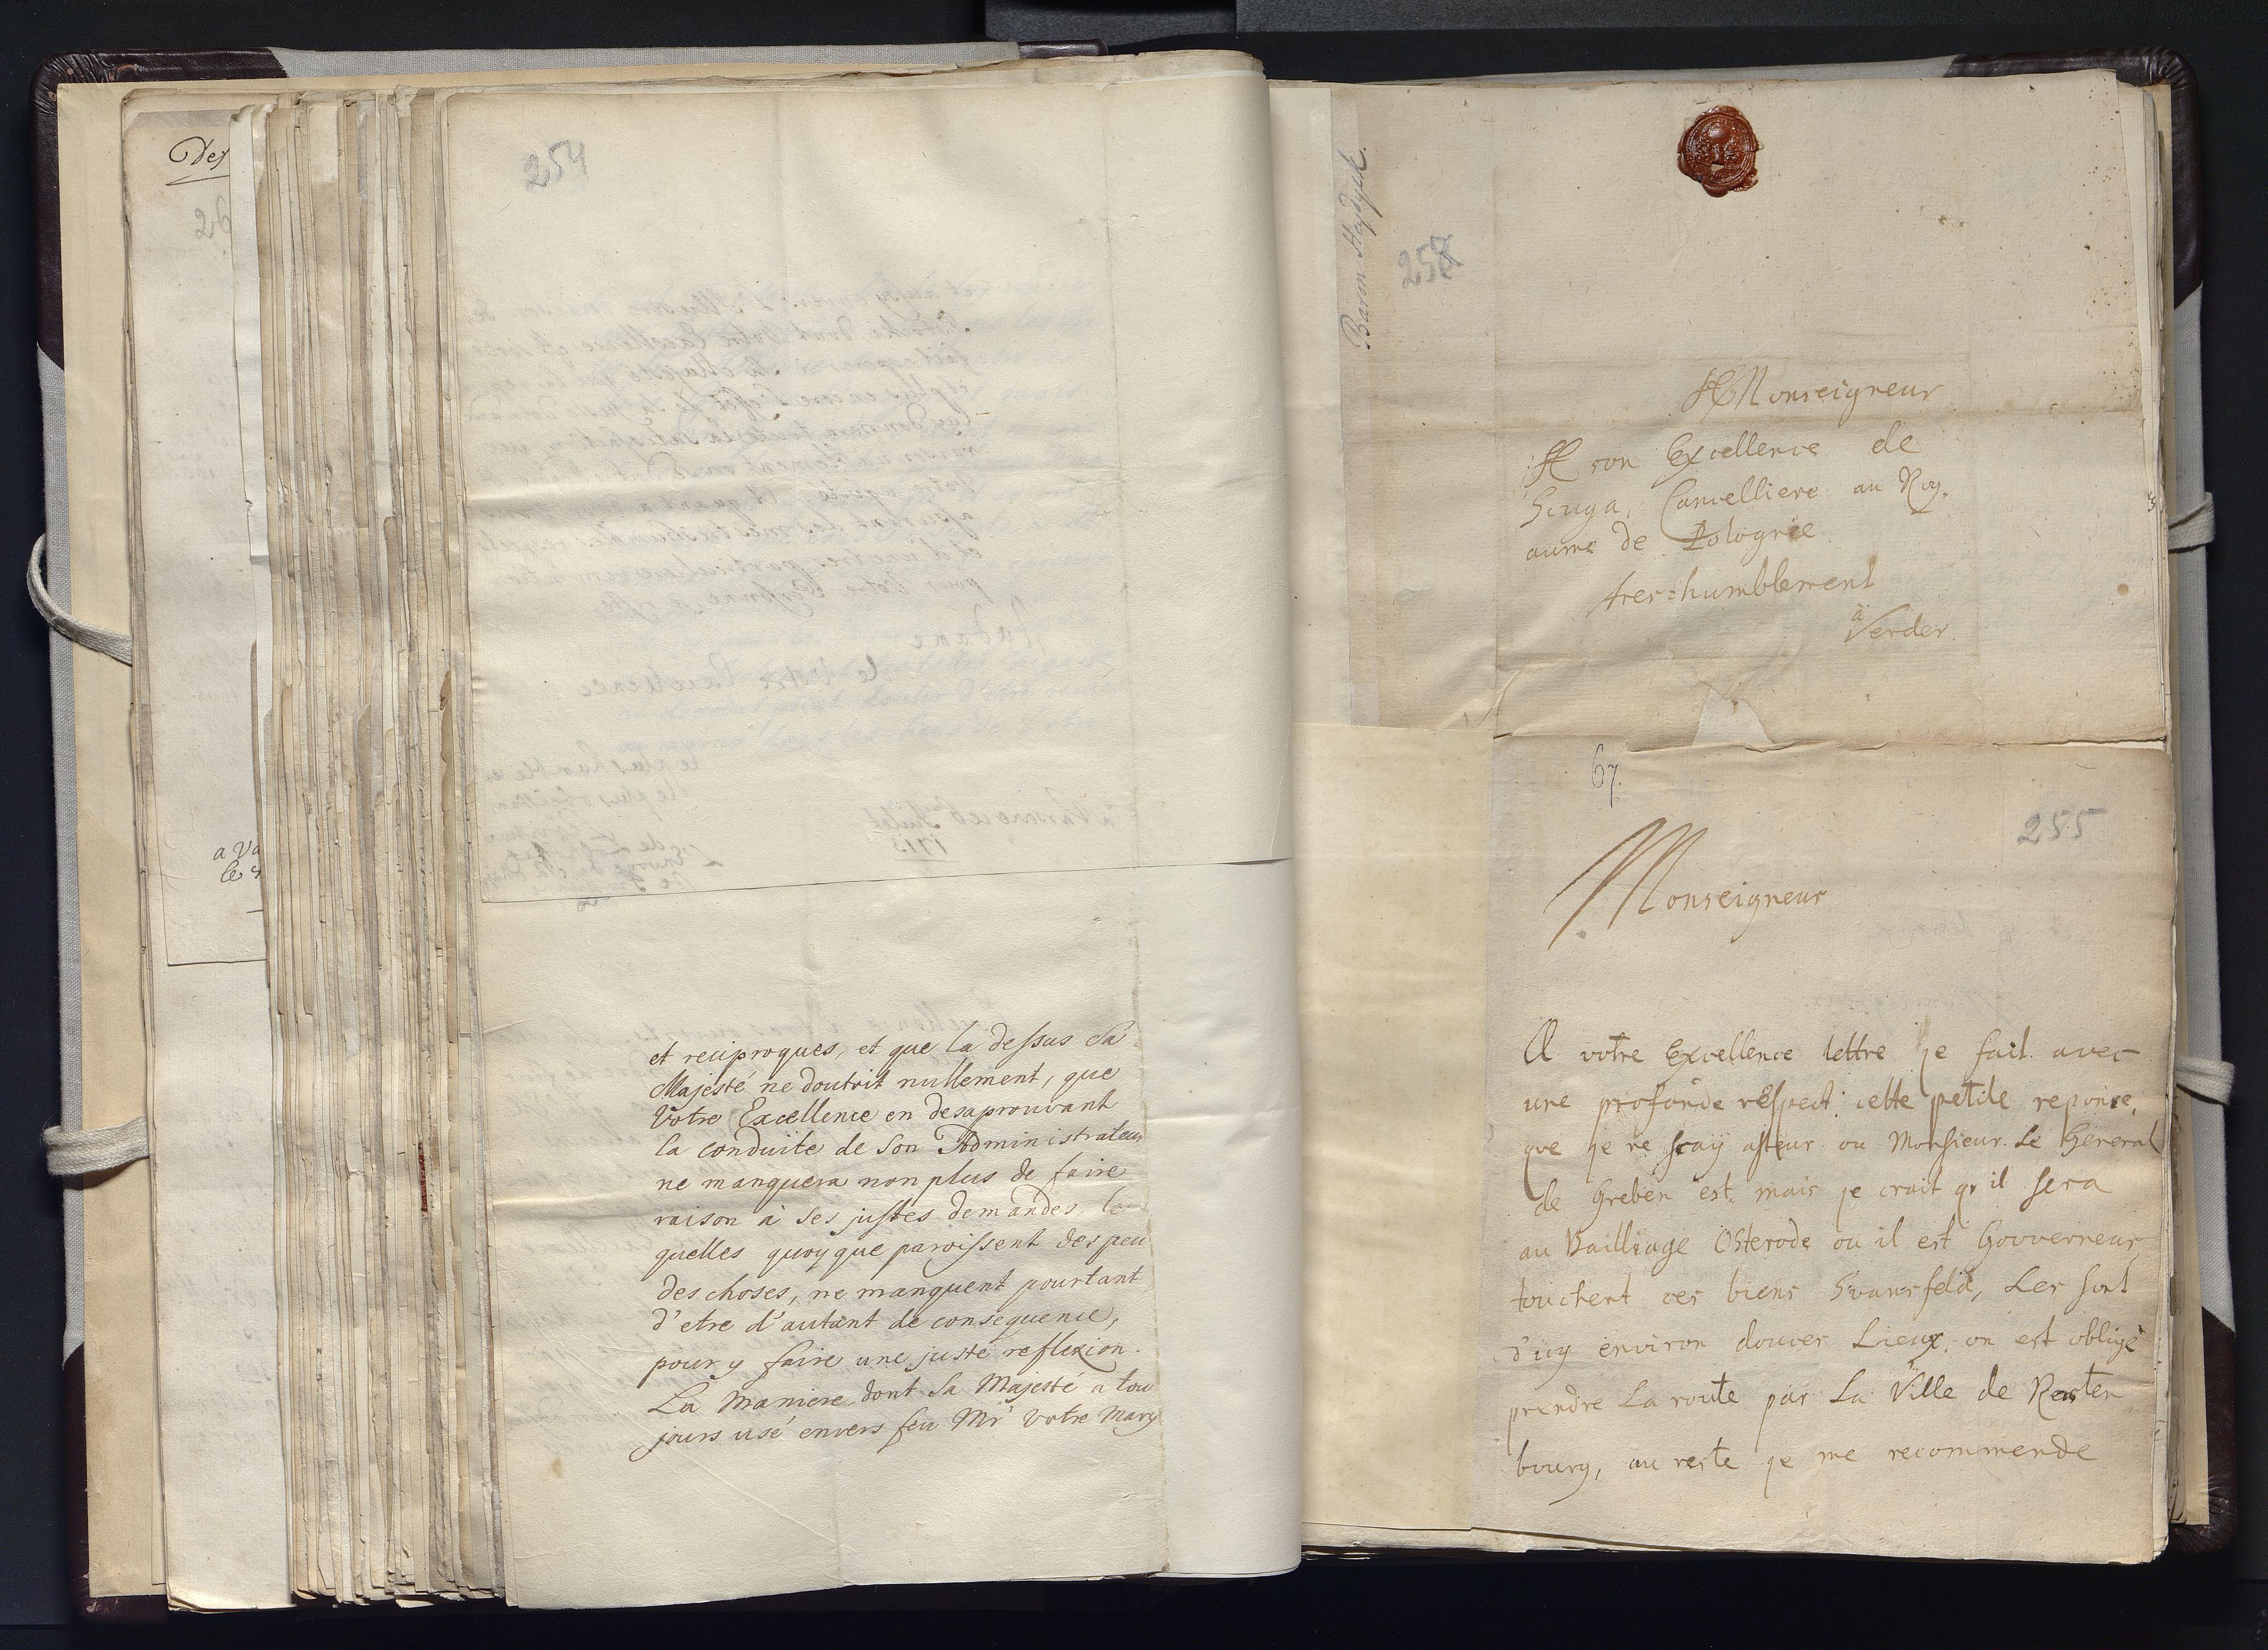 Des
26
a Va
le
254
et reciproques, et que la dessus Sa
Majesté ne doutoit nullement, que
Votre Excellence en desaprouvant
la conduite de Son Administrateur
ne manquera non plus de faire
raison à ses justes demandes, les
quelles quoyque paroissent des peu
des choses, ne manquent pourtant
d'etre d'autant de consequence,
pour y faire une juste reflexion.
La maniere dont Sa Majesté a tou
jours usé envers feu Mr Votre Mary
Baron Heydyk.
258
A Monseigneur
A son Excellence de
Cancelliere au Roy,
aume de Pologne
tres=humblement
à
Verder.
67.
255
Monseigneur
A votre Excellence lettre je fait avec
une profonde respect cette petite reponse,
que je ne scay asteur ou Monsieur Le General
de Greben est, mais je crait qu il sera
au Bailliage Osterode ou il est Gouverneur,
touchent ces biens Gvansfeld, Les sont
d'icy environ douces Lieux, on est obligé
prendre La route par La Ville de Rasten
bourg, au reste je me recommende